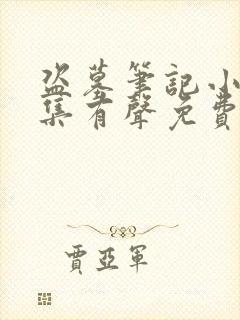 盗墓筆記小
集有聲免費
賈亞軍